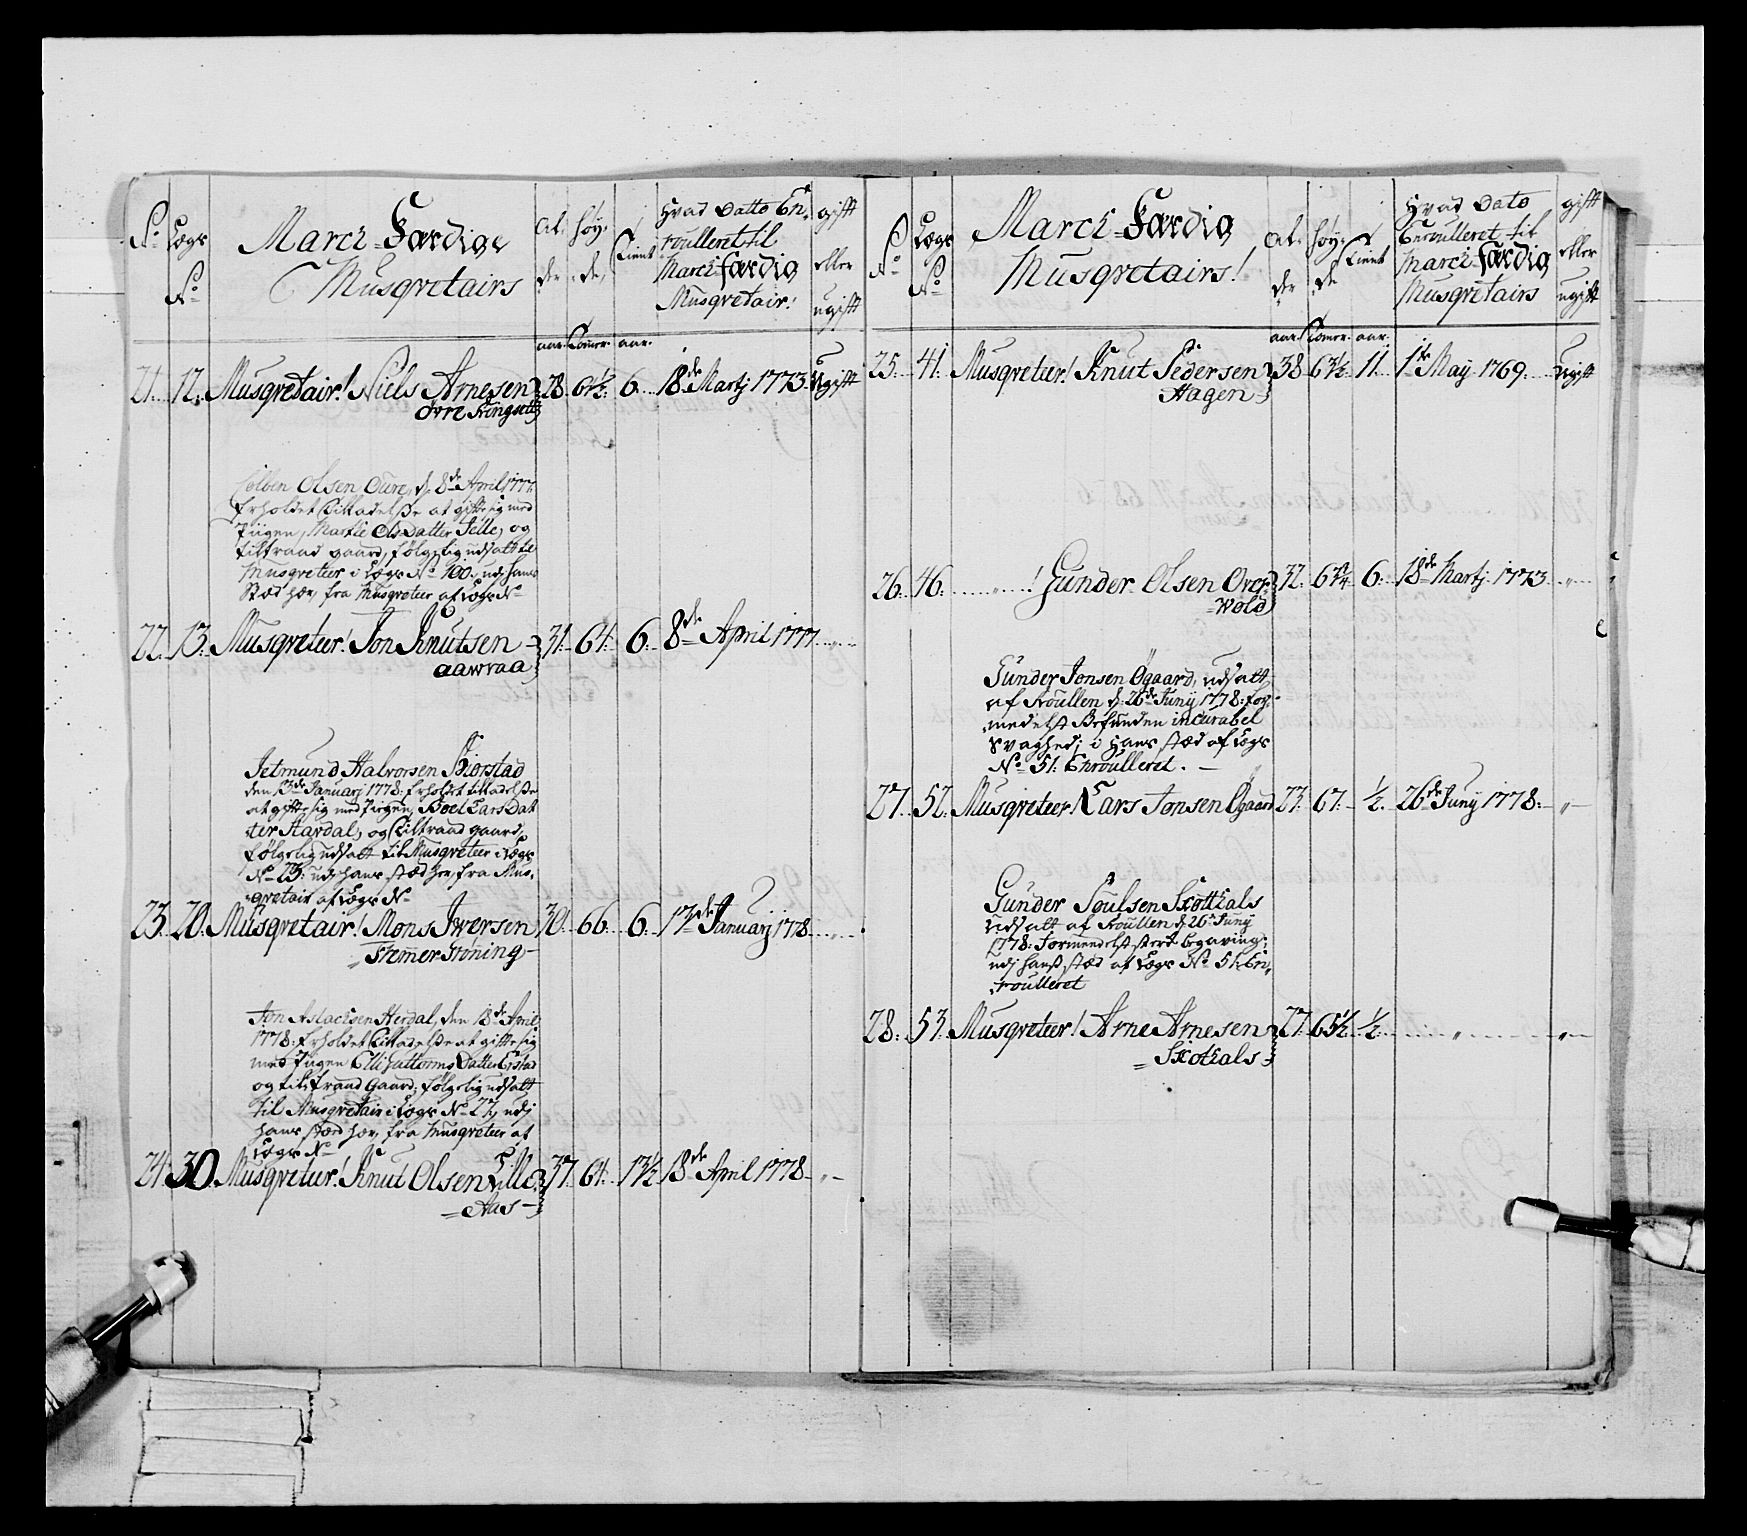 No
Lægs
No
March-Færdige
Musqvetairs
Al-
der
Høy-
de
Tient
Hvad Datto En-
roulleret til
March-færdig
Musqvetair:
gift
eller
ugift
aar. Tomer. aar.
21. 12. Musqvetair! Niels Arnesen 28. 61½. 6. 18de Martj 1773. Ugifft
Øvre
Colben Olsen Oure, d. 8de April 1777
Erholdet Tilladelsse at gifte sig med
Piigen, Marthe Olsdatter Selle, og
tiltraad gaard, følgelig udsatt til
Musqveteer i Lægs No 100. udj hans
Stæd her, fra Musqveteer af Lægs No
22. 13. Musqveteer! Jon Knutsen 31. 61. 6. 8de April 1777. „
Aawraa
Jetmund Halvorsen Biorstad
den 13de Januarj 1778: Erholdet tilladelsse
at gifte sig med Pigen, Boel Lars Dat
ter Aardal, og Tiltraad gaard,
følgelig udsatt til Musqveteer i Lægs
No 23: udj hans stæd her, fra Mus-
qvetair af Lægs No
23. 20. Musqvetair! Mons Iversen 30. 66. 6. 13de Januarj 1778. „
Fremmer Froning
Jon Aslachsen Herdal, den 18de April
1778: Erholdet Tilladelsse at gifte sig
med Piigen Elli Guttorms Datter
og til, traad Gaard; følgelig udsatt
til Musqvetair i Lægs No 27, udj
hans stæd her, fra Musqveteer af
Lægs No
24. 30. Musqveteer! Knut Olsen Lille 37. 61. 13½ 18de April 1778. „
Aas
No
Lægs
No
March-Færdig
Musqvetairs!
Al-
der
Høy-
de
Tient
Hvad Dato
Enroulleret til
March-Færdig
Musqvetairs
gift
eller
ugift
aar. Tomer. aar.
25. 41. Musqveteer! Knut Pedersen 38 63½. 11. 1de May 1769. Ugift
Hagen
26. 46. „ ! Gunder Olsen Orch- 32. 63/4 6. 18de Martj 1773 „
wold
Gunder Jonsen Øgaard, udsatt
af Roullen d. 26de Junij 1778: for-
medelst Befunden incurabel
svaghed; i Hans stæd af Lægs
No 51: Enroulleret.
27. 52. Musqveteer! Lars Jonsen Øgaard 23. 67. ½. 26de Junij 1778. „
Gunder Poulsen Skottkals
udsatt af Roullen d. 26de Junij
1778: Formedelst sterk begaving;
udj hans stæd af Lægs No 51: En-
roulleret
28. 53. Musqveteer! Arne Arnesen 27. 65½ ½. „ „
Skotkals